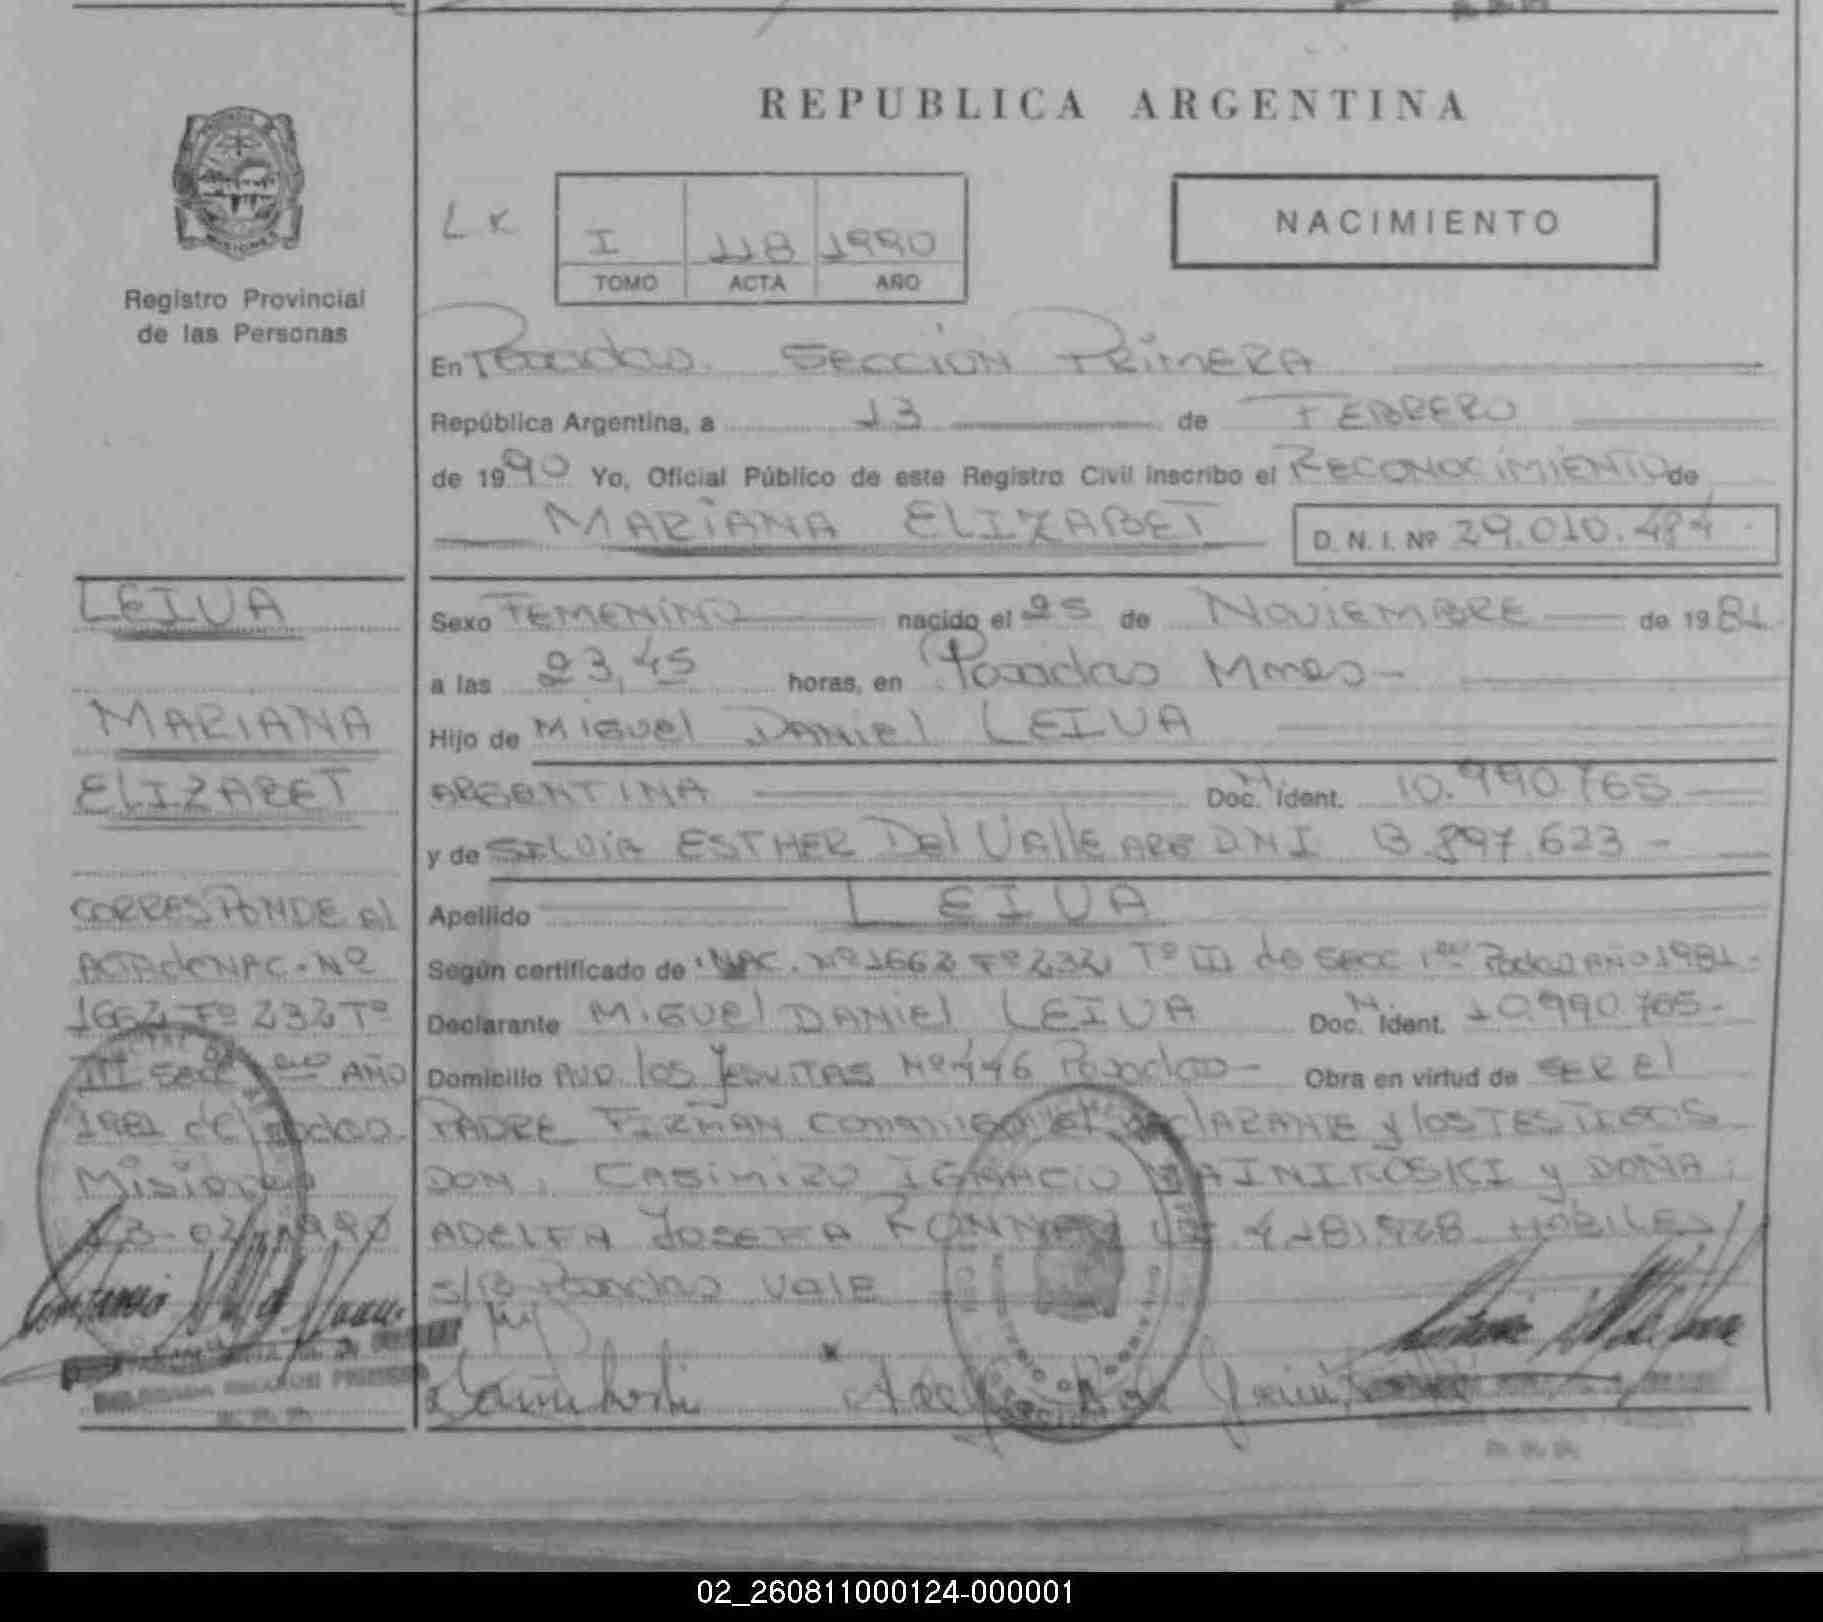 REPUBLICA ARGENTINA
LK
I 118 1990
TOMO ACTA AÑO
NACIMIENTO
Registro Provincial
de las Personas
En Posadas. SECCION PRIMERA
República Argentina, a 13 de FEBRERO
de 1990 Yo, Oficial Público de este Registro Civil inscribo el RECONOCIMIENTO de
MARIANA ELIZABET
D. N. I. Nº 29.010.484
LEIVA
MARIANA
ELIZABET
CORRESPONDE Al
ACTA de NAC. Nº
1662 Fº 232 Tº
III Secc AÑO
1981 de Posdas.
Misiones
13-02-1990
Sexo FEMENINO nacido el 25 de NOVIEMBRE de 1981
a las 23,45 horas, en Posadas Mnes-
Hijo de MIGUEL DANIEL LEIVA
ARGENTINA Doc. Ident. 10.990.765
y de SILVIA ESTHER Del VAllE ARG DNI 13.897.623 -
Apellido LEIVA
Según certificado de NAC. Nº 1662 Fº 232 Tº III de SECC 1ra AÑO 1981-
Declarante MIGUEL DANIEL LEIVA Doc. Ident. 10.990.765-
Domicilio AVD. los JESUITAS Nº 446 Posadas- Obra en virtud de SER El
PADRE FIRMAN conmigo el DEclARANTE y los TESTIGOS
DON: CASIMIRO IGNACIO y DOÑA:
ADELFA JOSEFA HABILES
Posadas VALE
02_260811000124-000001